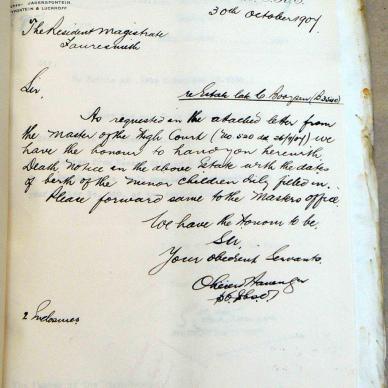 JAGERSFONTEIN,
& LUCKHOFF
30th October 1907.
The Resident Magistrate
Fauresmith
Sir,
re Estate late C. Booysen
As requested in the attached letter from
the Master of the High Court (No 520 dd 26/9/07) we
have the honour to hand you herewith
Death Notice in the above Estate with the dates
of birth of the minor children duly filled in.
Please forward same to the Masters Office.
We have the Honour to be.
Sir
Your obedient Servants
2 Enclosures